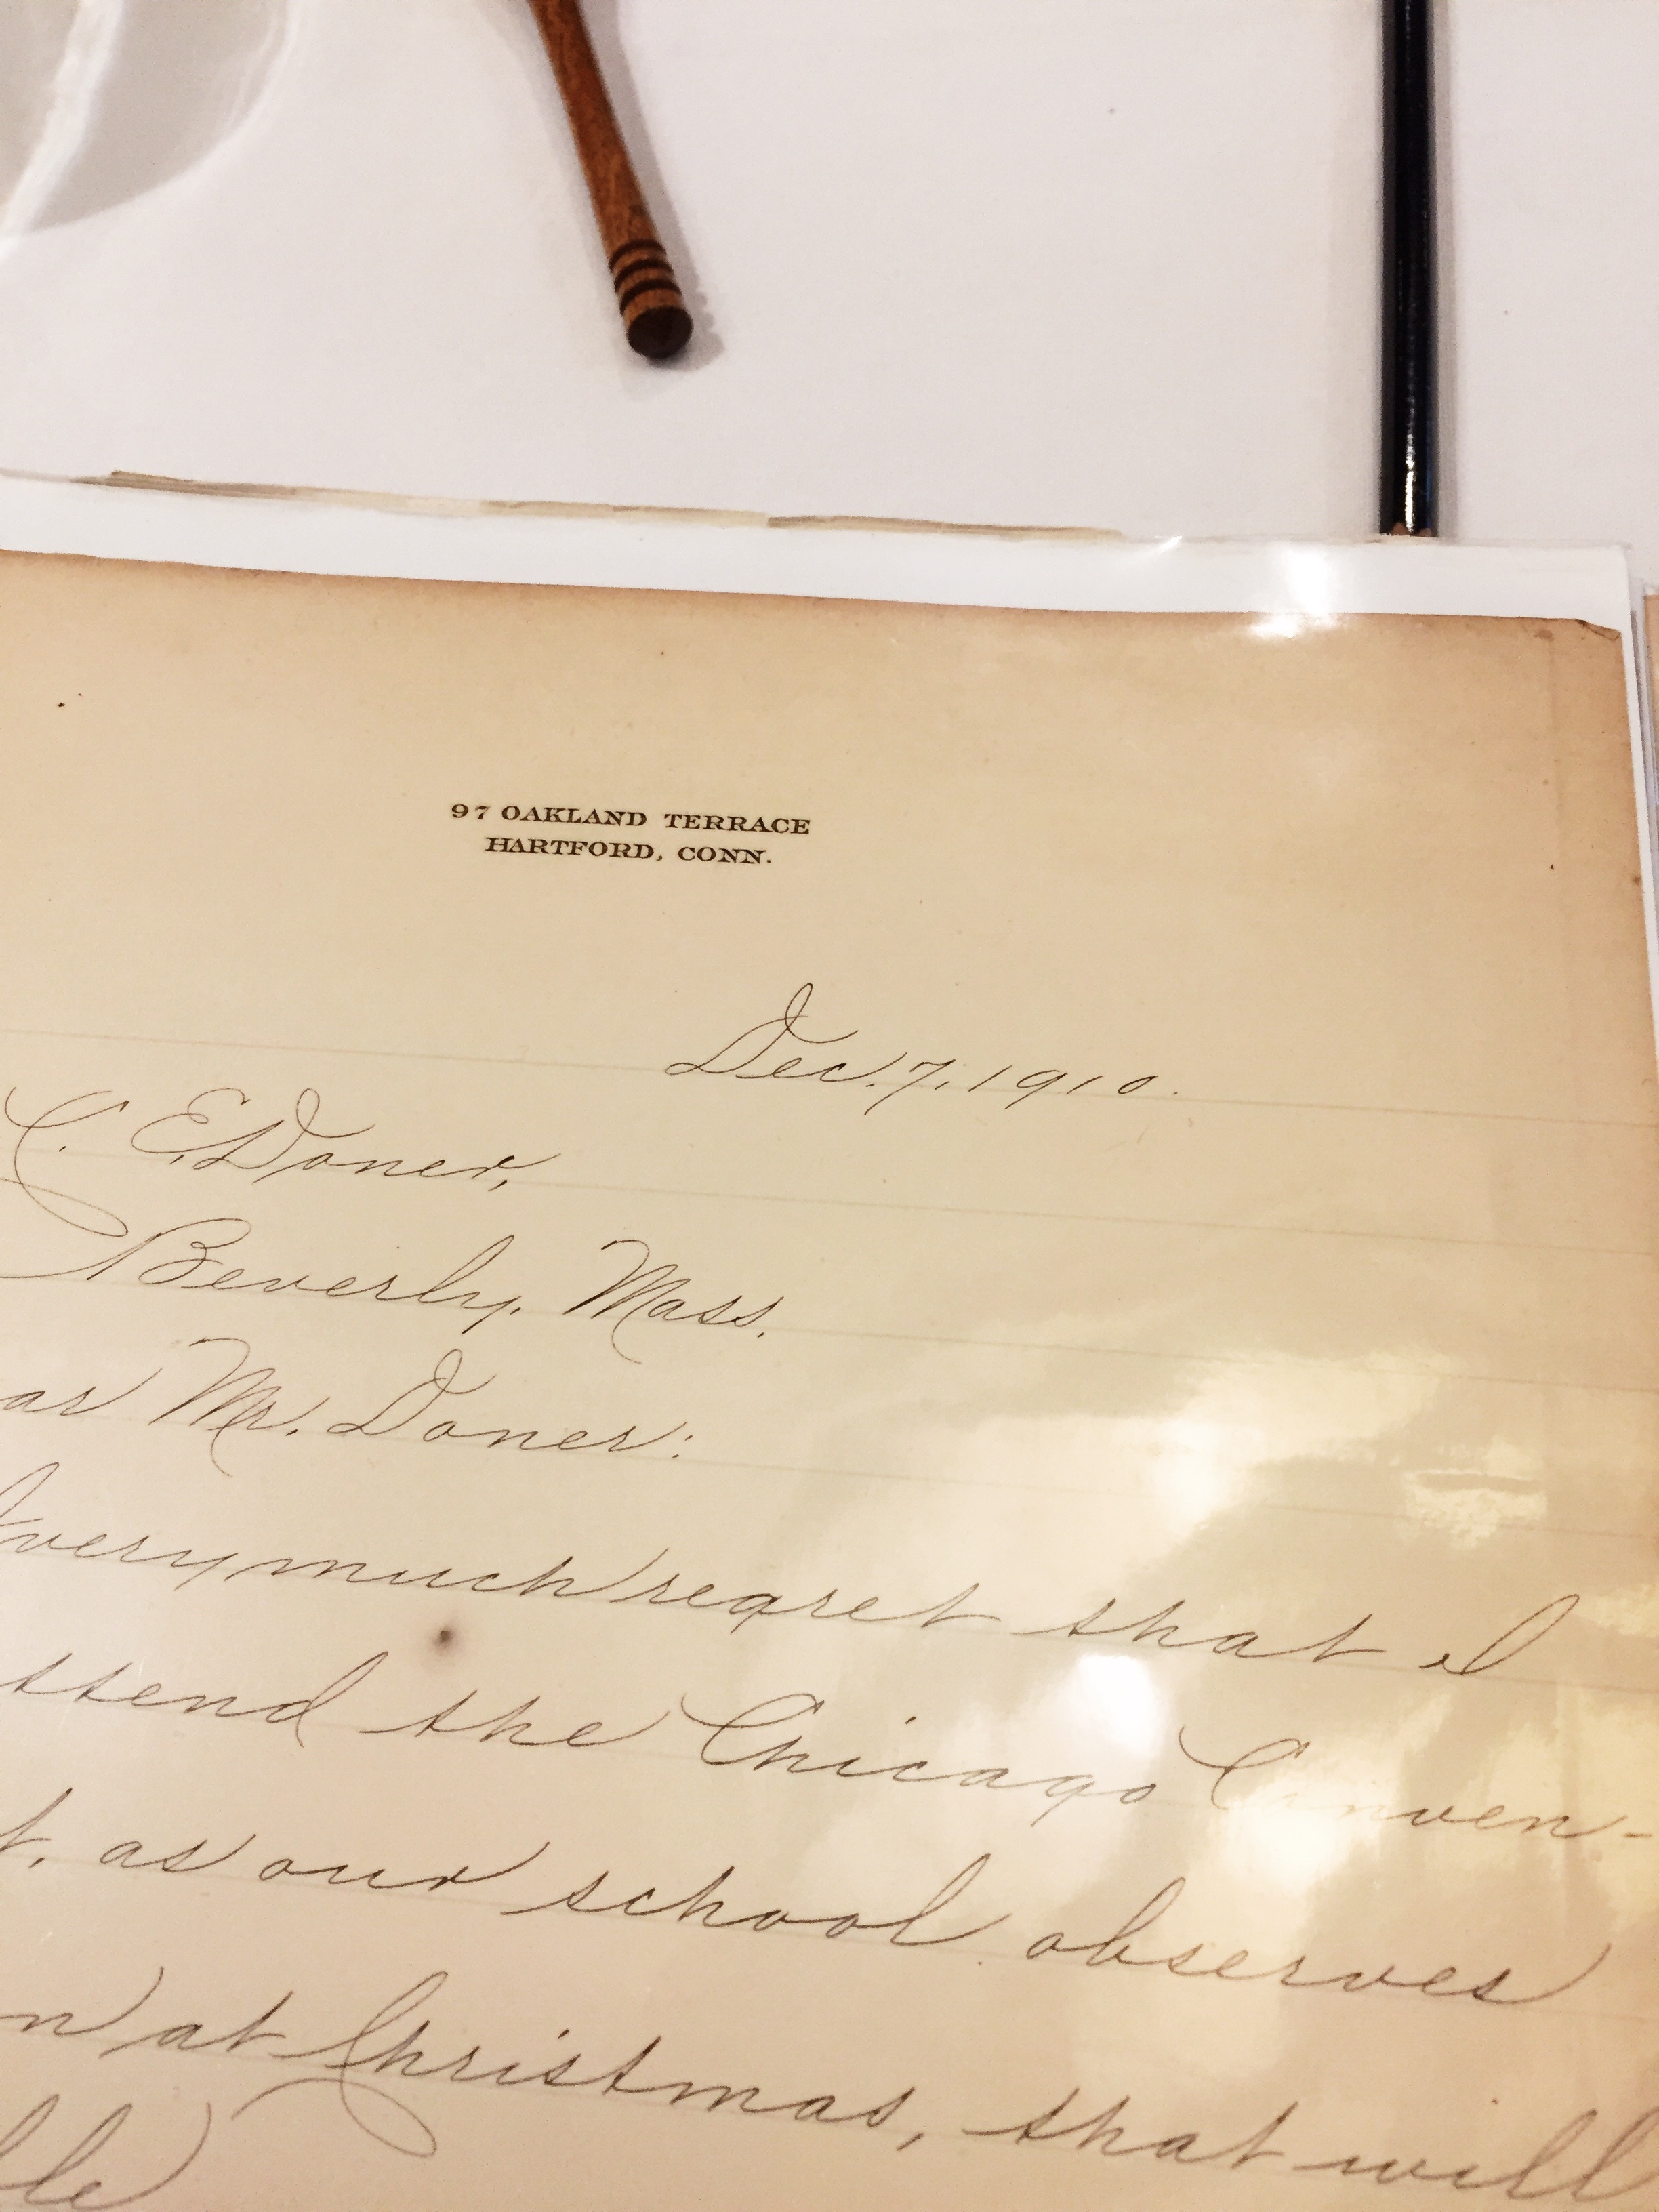 97 OAKLAND TERRACE
HARTFORD, CONN.
Dec. 7, 1910.
C. E. Doner,
Beverly, Mass.
ar Mr. Doner:
I very much regret that I
ttend the Chicago Conven-
t, as our school observes
n at Christmas, that will
le